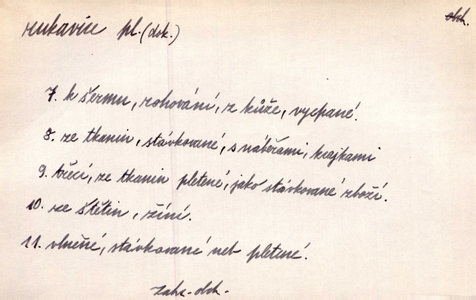 obch.
rukavice pl. (dok.)
7. k šermu, rohování, z kůže, vycpané.
8. ze tkanin, stávkované, s náběrami, krajkami
9. třecí, ze tkanin pletené, jako stávkované zboží.
10. ze štětin, žíní.
11. vlněné, stávkované neb pletené.
zahr.-obch.